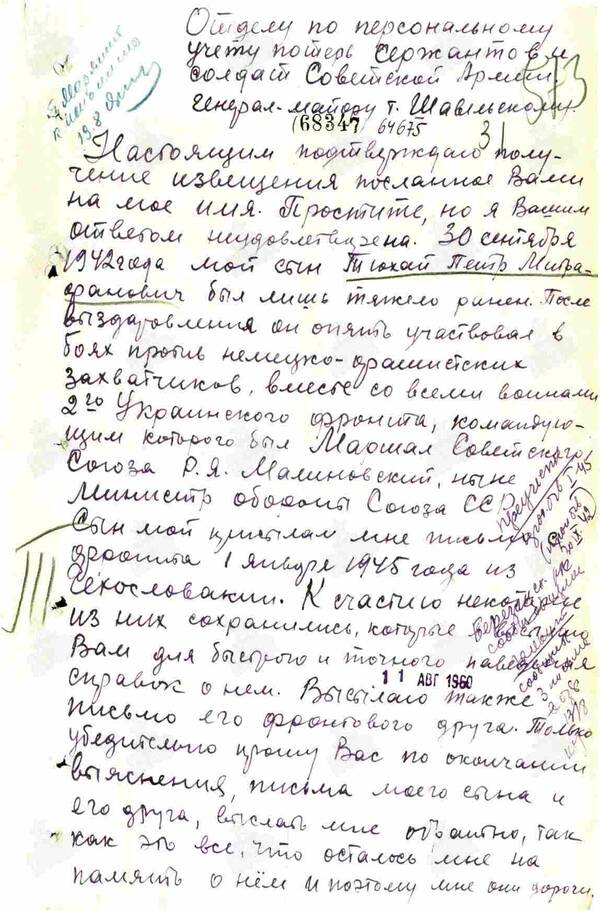 Отделу по персональному
учету потерь сержантов и
солдат Советской Армии
генерал-майору т. Шавельскому.
573
(68347 64675
Настоящим подтверждаю полу-
чение извещения посланное Вами
на мое имя. Простите, но я Вашим
ответом неудовлетворена. 30 сентября
1942 года мой сын Тюхай Петр Митро-
фанович был лишь тяжело ранен. После
выздоровления он опять участвовал в
боях против немецко-фашистских
захватчиков, вместе со всеми воинами
2го Украинского фронта, командую-
щим которого был Маршал Советского
Союза Р.Я. Малиновский, ныне
Министр обороны Союза ССР.
Сын мой присылал мне письма
фронта 1 января 1945 года из
Чехословакии. К счастию некоторые
из них сохранились, которые
Вам для быстрого и точного наведения
справок о нем. Высылаю также
11 АВГ 1960
письмо его фронтового друга. Только
убедительно прошу Вас по окончании
выяснения, письма моего сына и
его друга, выслать мне обратно, так
как это все, что осталось мне на
память о нём и поэтому мне они дороги.